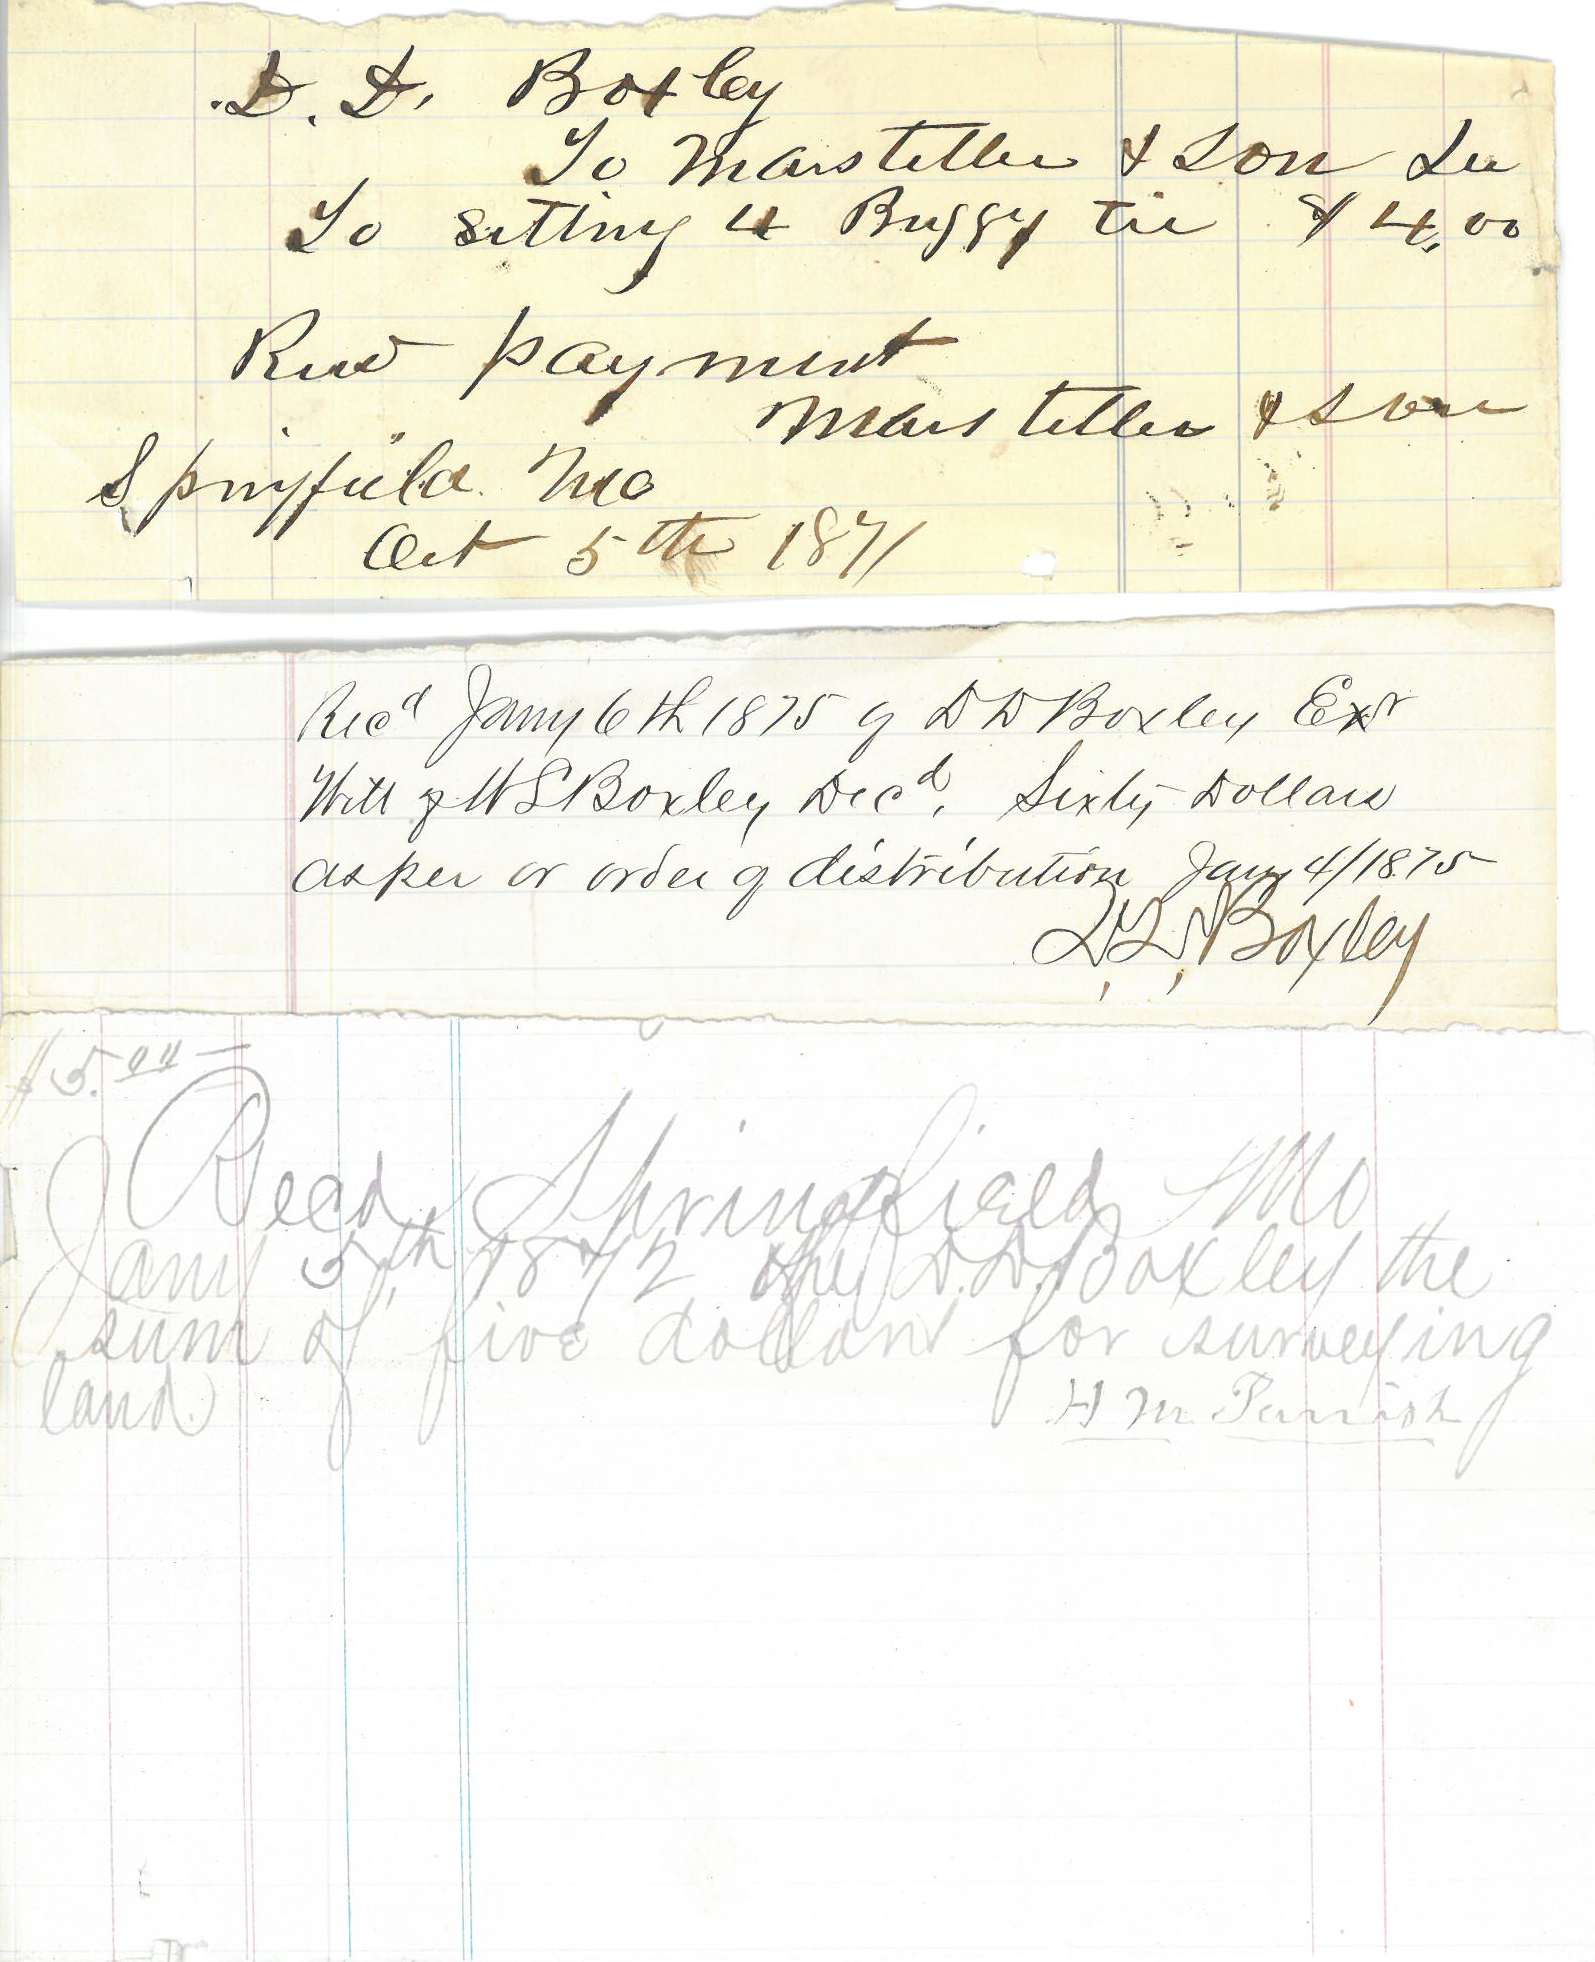 D. D. Boxley
To Marsteller & Son Dr
To setting 4 Buggy tire $4,00
Recd payment
Marsteller & Son
Springfield Mo
Oct 5th 1871
Recd Jany 6th 1875 of D D Boxley Exr
Will of W S Boxley Decd. Sixty Dollars
as per or order of distribution Jany 4/1875
Boxley
$5.00
Recd, Springfield, Mo
Jany 5th, 1872 of D.D. Boxley the
sum of five dollars for surveying
land.
H M Parrish